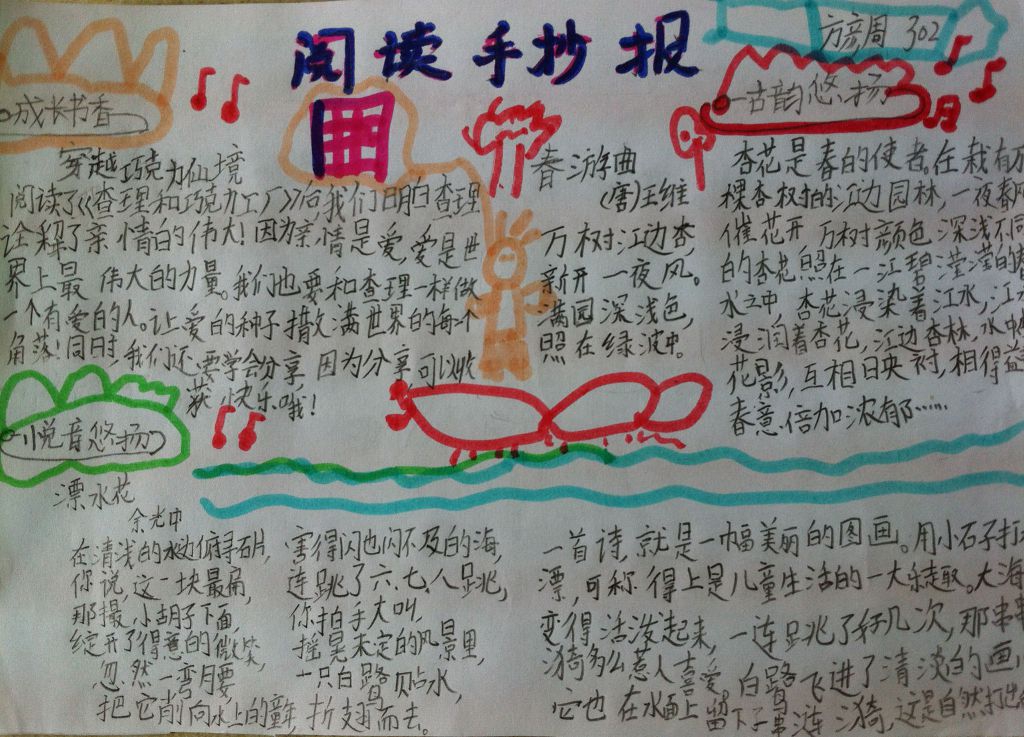 阅读手抄报
方彦周 302
成长书香
穿越巧克力仙境
阅读了《查理和巧克力工厂》后,我们明白查理
诠释了亲情的伟大!因为亲情是爱,爱是世
界上最伟大的力量。我们也要和查理一样做
一个有爱的人。让爱的种子撒满世界的每个
角落!同时,我们还要学会分享,因为分享,可以收
获快乐哦!
古韵悠扬
春游曲
(唐)王维
万树江边杏,
新开一夜风。
满园深浅色,
照在绿波中。
杏花是春的使者,在栽有万
棵杏树的江边园林,一夜春风
催花开,万树颜色深浅不同
的杏花照在一江碧滢滢的春
水之中,杏花浸染着江水,江水
浸润着杏花,江边杏林,水中
花影,互相映衬,相得益
春意倍加浓郁……
悦音悠扬
漂水花
余光中
在清浅的水边俯寻石片,
你说,这一块最扁,
那撮小胡子下面,
绽开了得意的微笑,
忽然一弯腰
把它削向水上的童年,
害得闪也闪不及的海,
连跳了六、七、八跳,
你拍手大叫,
摇晃未定的风景里,
一只白鹭贴水,
拆翅而去。
一首诗,就是一幅美丽的图画。用小石子打水
漂,可称得上是儿童生活的一大乐趣。大海
变得活泼起来,一连跳了好几次,那串串
漪多么惹人喜爱。白鹭飞进了清淡的画
它也在水面上留下了一串涟漪,这是自然打出